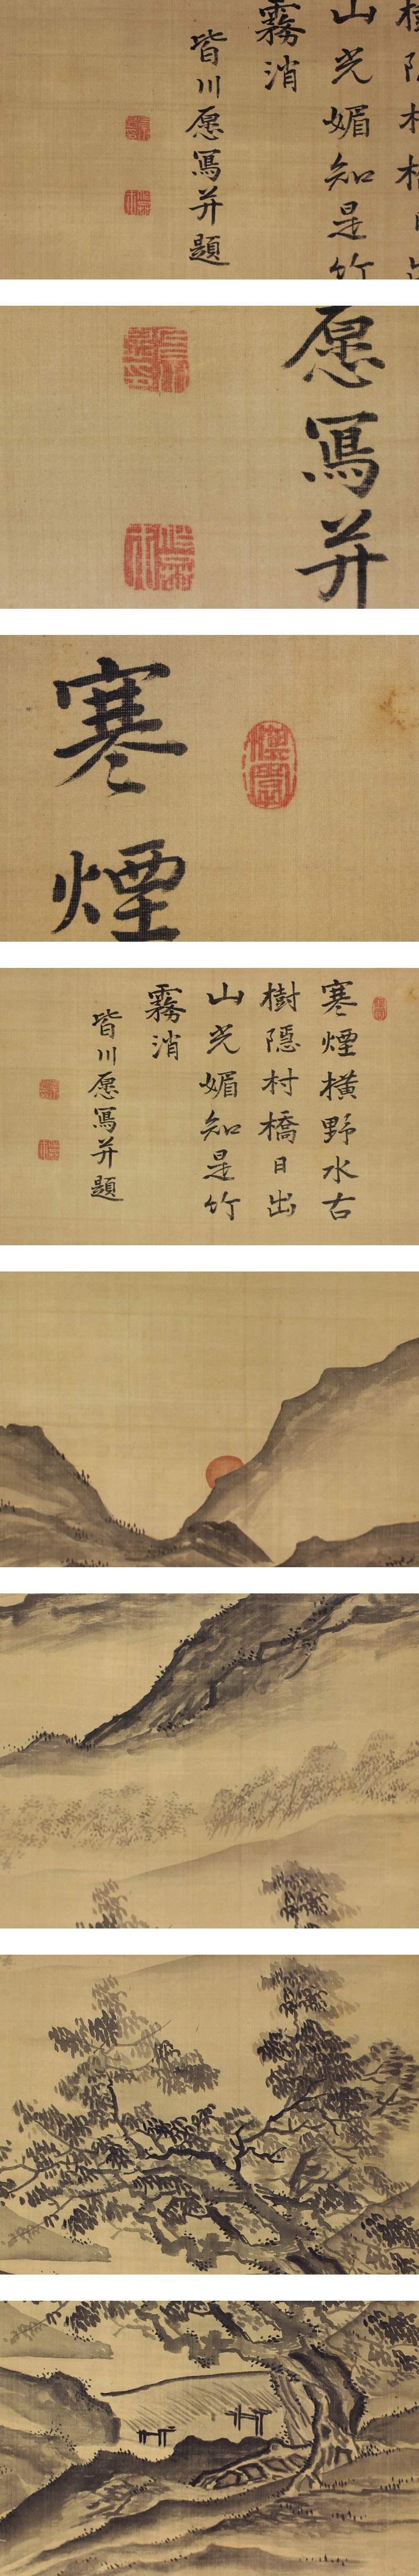 樹隱村橋日出
山光媚知是竹
霧消
皆川愿寫并題
愿寫并
寒煙
寒煙橫野水古
樹隱村橋日出
山光媚知是竹
霧消
皆川愿寫并題